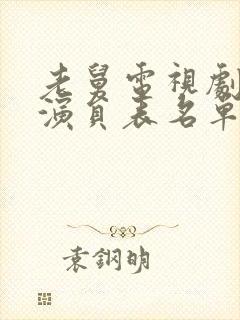 老舅電視劇
演員表名單
袁鋼明